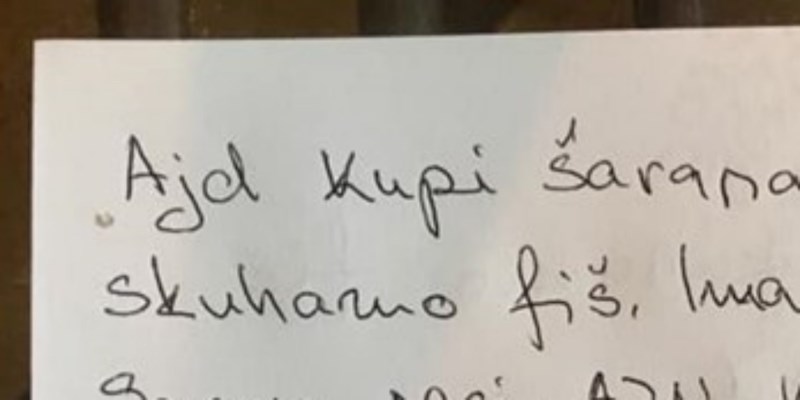 Ajd kupi šarana
skuhamo fiš. Ima